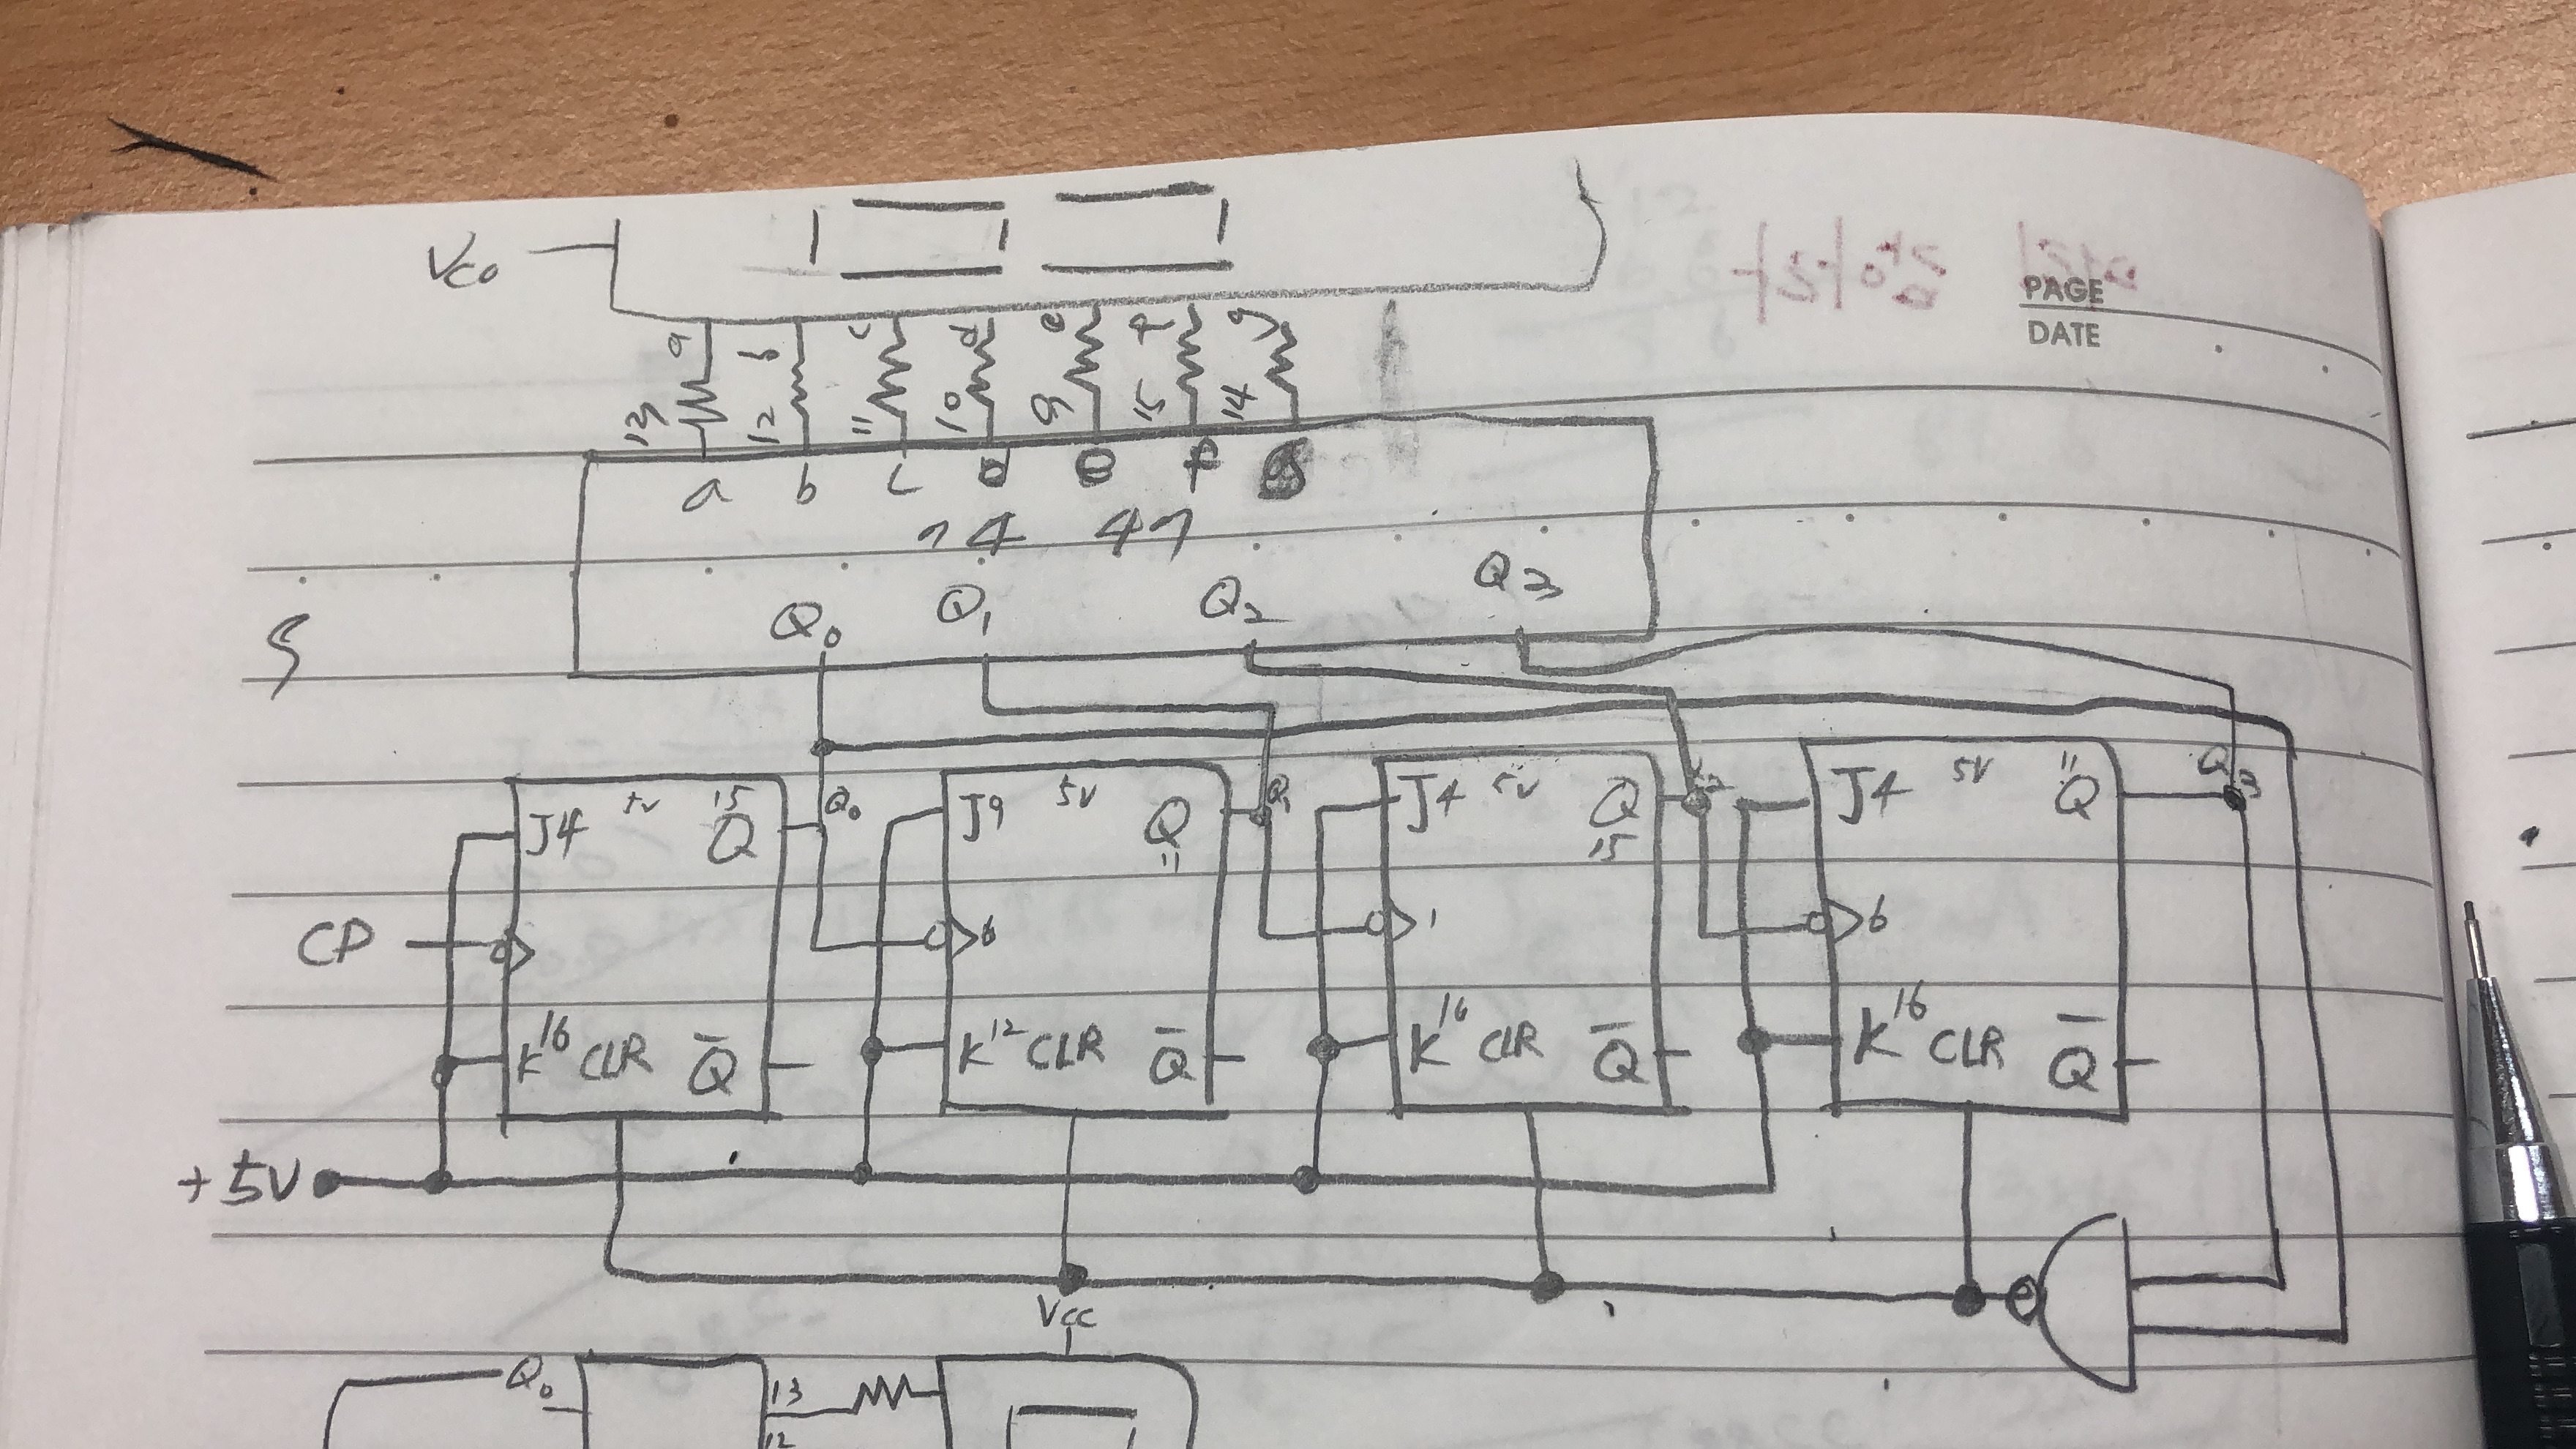 PAGE
DATE
Vco
a b c d e f g
13 12 11 10 9 15 14
a b c d e f g
74 47
Q0 Q1 Q2 Q3
J4 5V 15 Q Q0 J9 5V Q Q1 J4 5V Q J4 5V 11 Q Q3
11 15
CP 6 1 6
K 16 CLR Q̅ K 12 CLR Q̅ K 16 CLR Q̅ K 16 CLR Q̅
+5V
Vcc
Q0 13
12